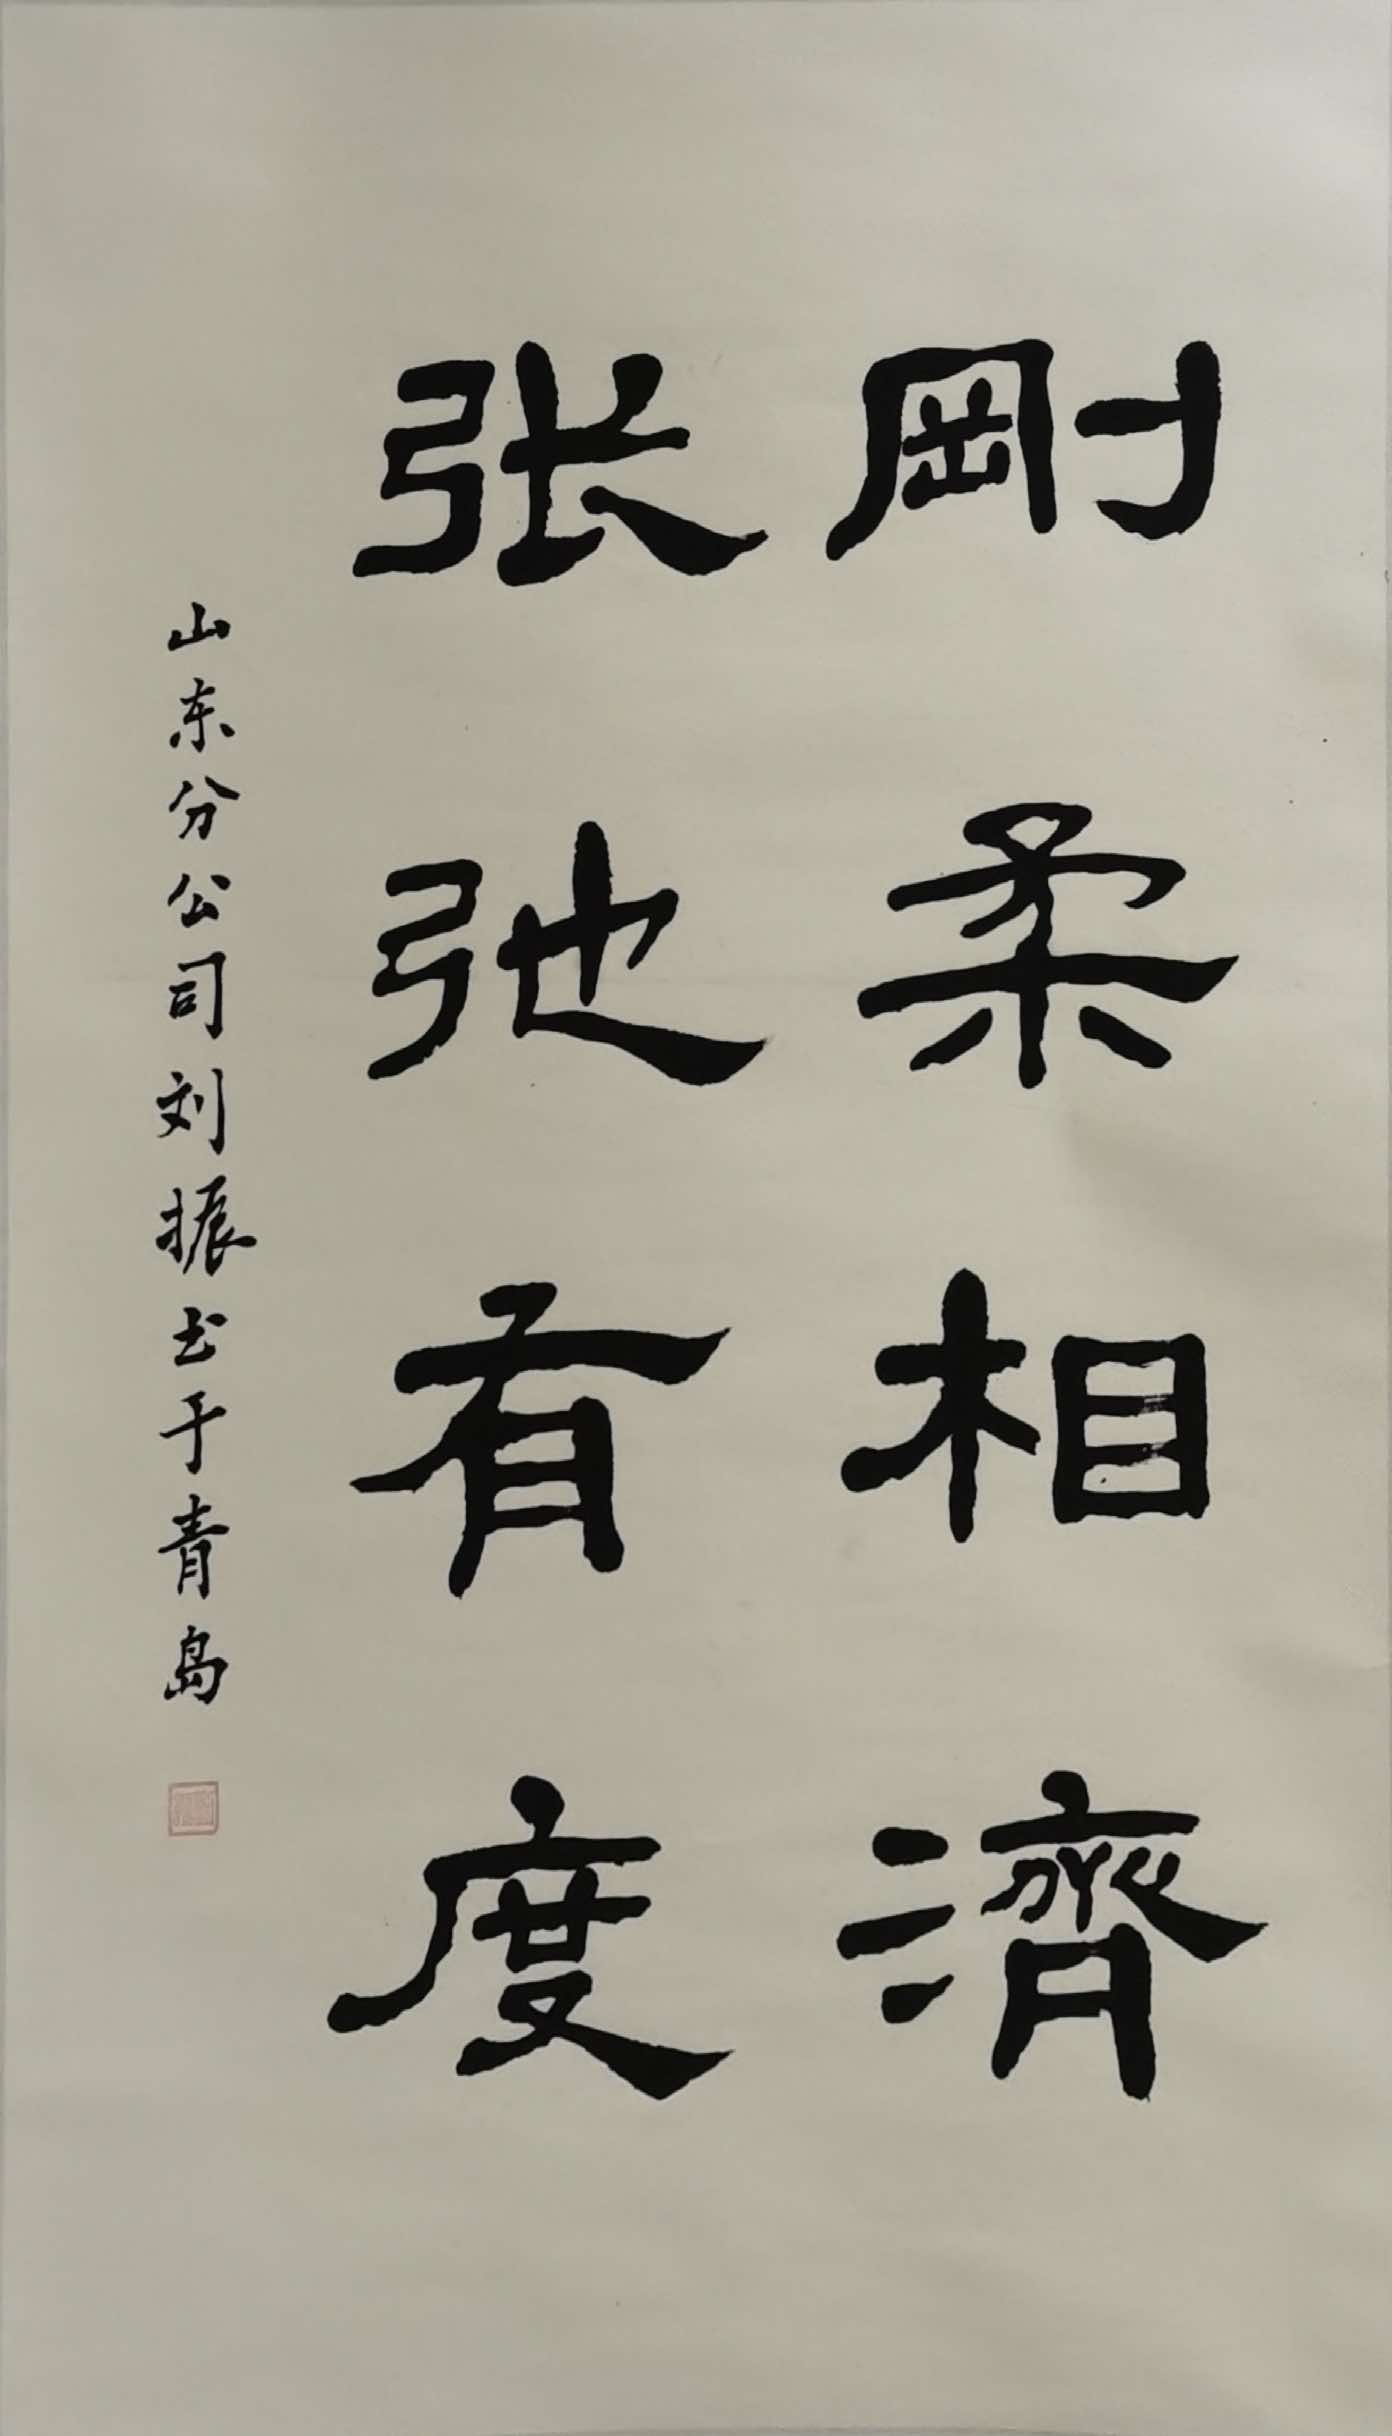 剛柔相濟
张弛有度
山东分公司刘振书于青岛